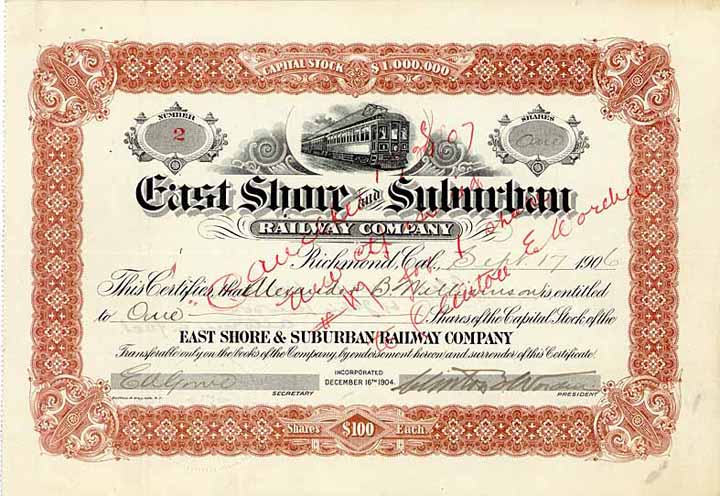 CAPITAL STOCK $1,000,000
NUMBER
2
SHARES
One
East Shore and Suburban
RAILWAY COMPANY
Richmond, Cal., Sept. 17 1906
This Certifies that Alexander B. Williamson is entitled
to One Shares of the Capital Stock of the
EAST SHORE & SUBURBAN RAILWAY COMPANY
Transferable only on the books of the Company, by endorsement hereon and surrender of this Certificate.
INCORPORATED
DECEMBER 16TH 1904.
SECRETARY
PRESIDENT
Shares $100 Each.
Cancelled
for 1 share
to Clinton E Worden